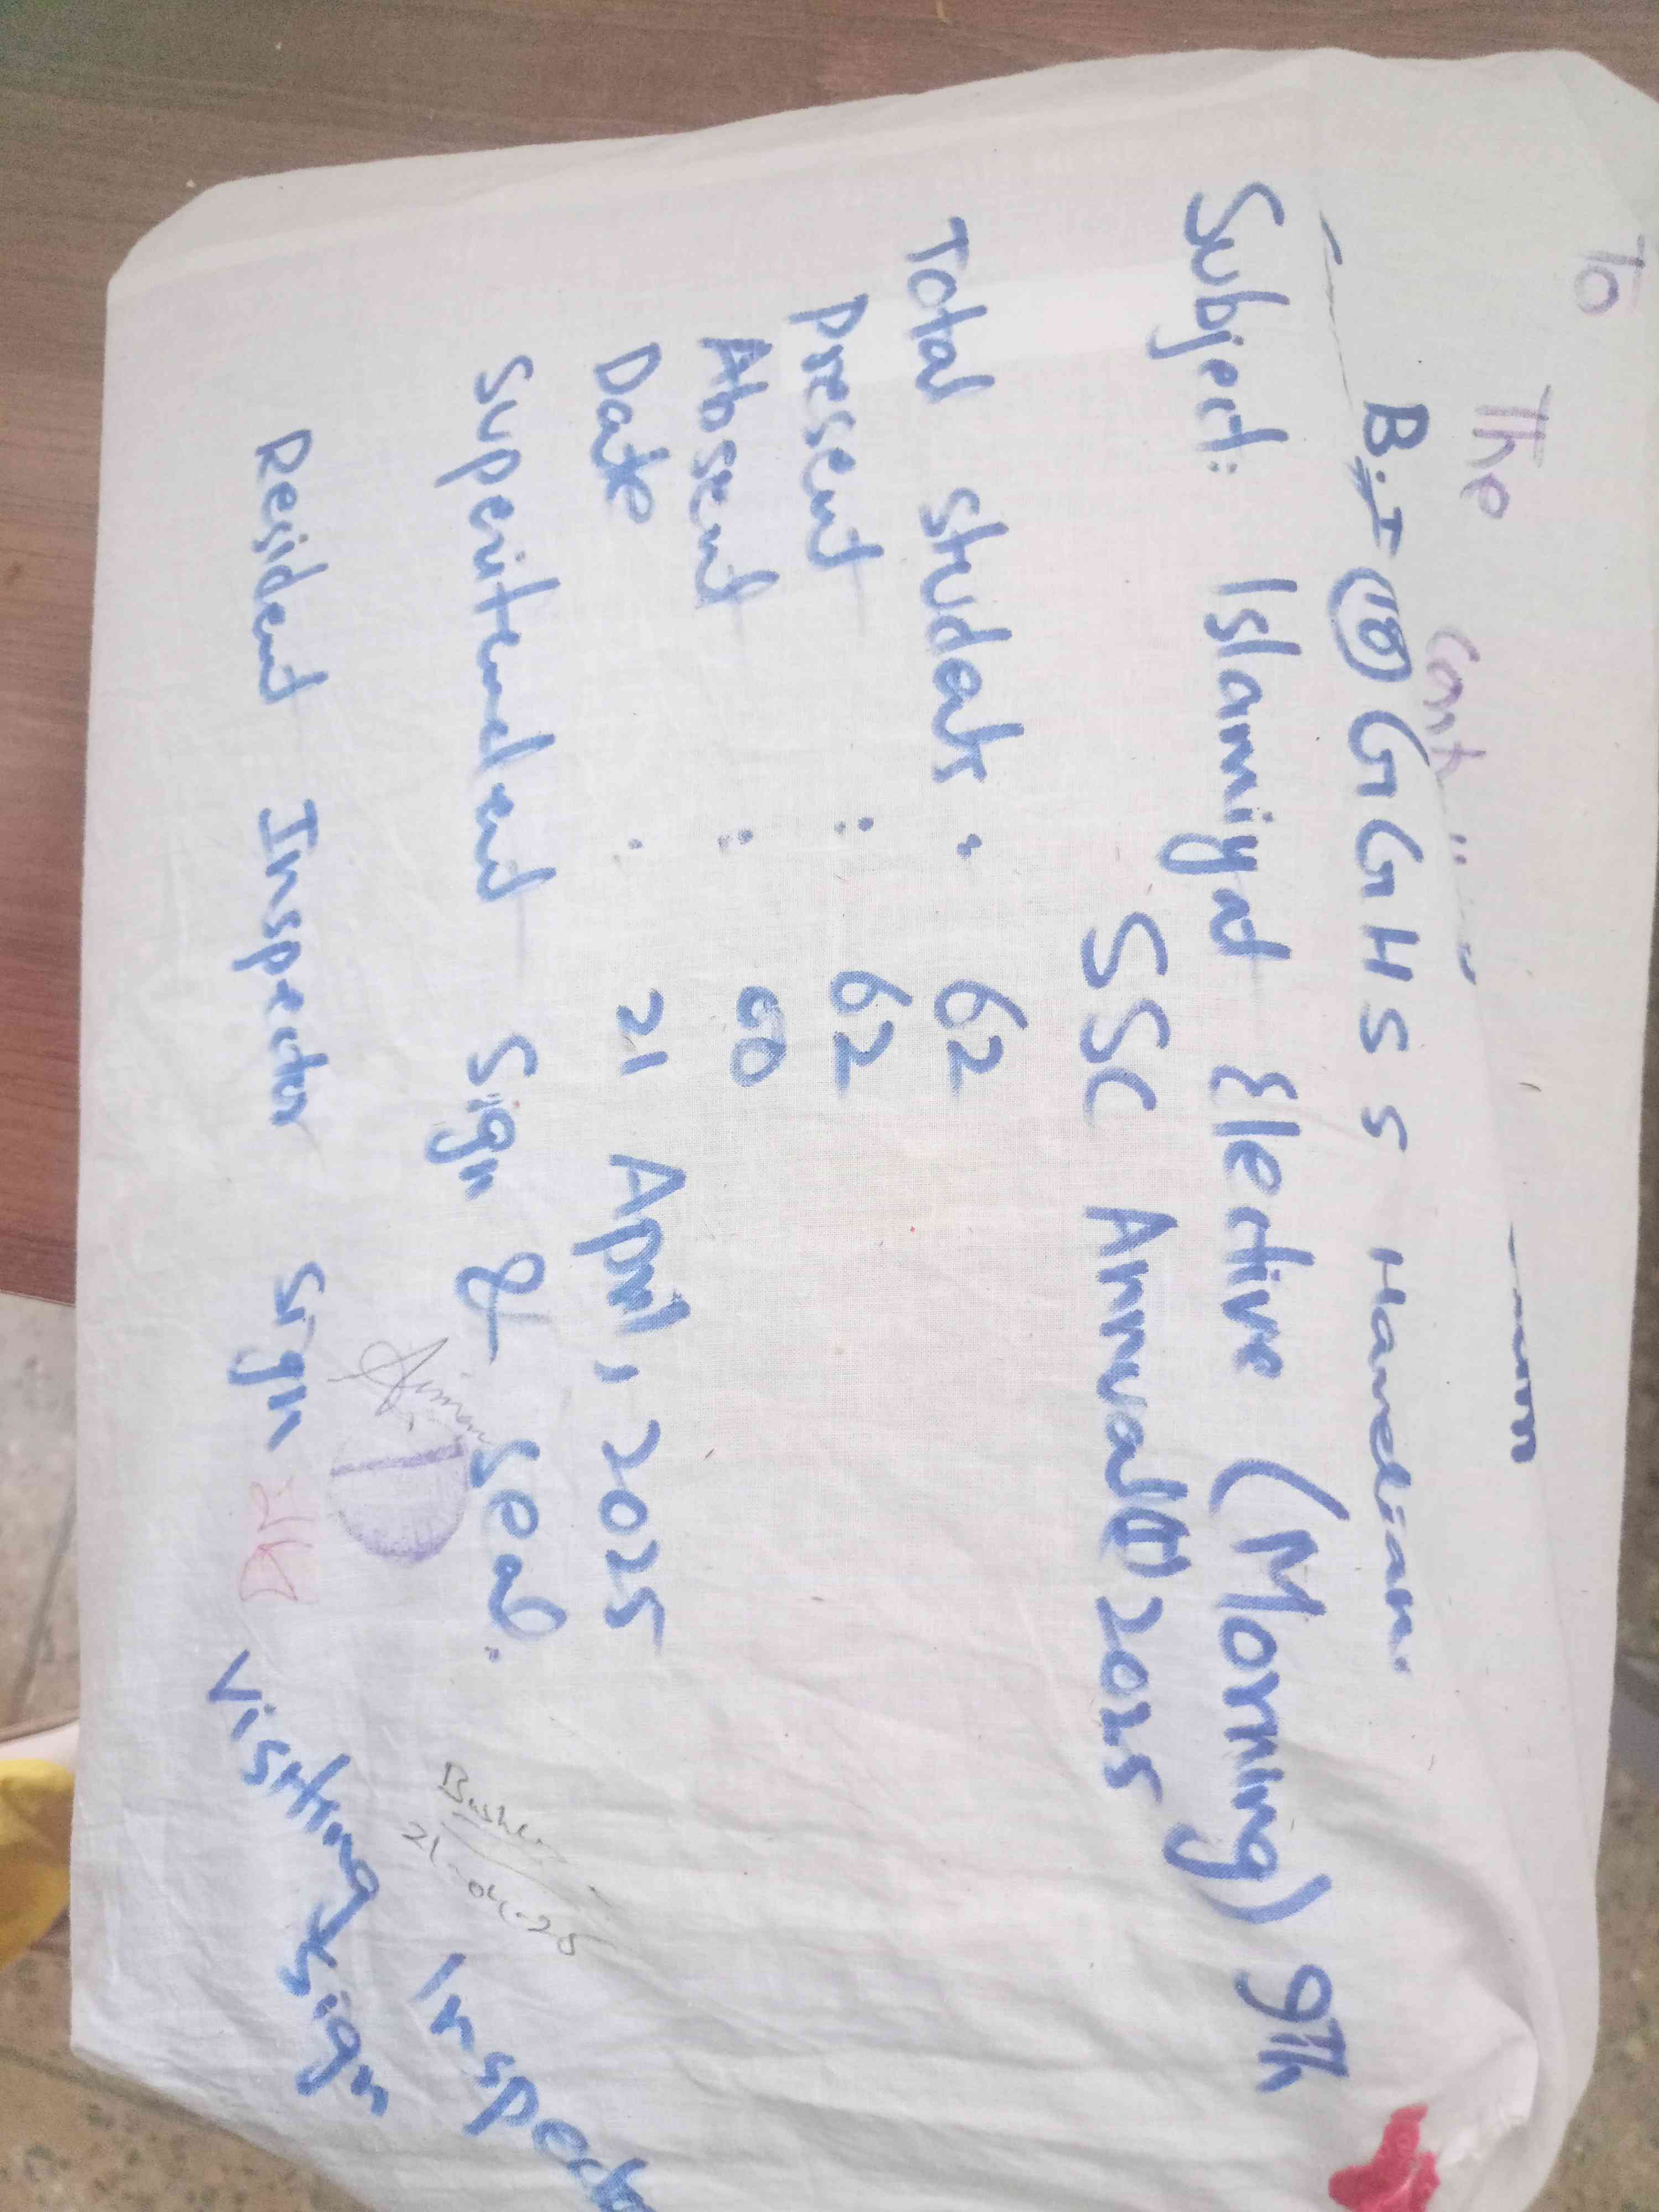 To
The
Cont
B.I 18 GGHSS Havelian.
Subject: Islamiyat Elective (Morning) 9Th
SSC Annual (I) 2025
Total students : 62
Present : 62
Absent : 00
Date : 21 April, 2025
Superitendent Sign & Seal.
Resident Inspector Sign
Bushra
21-04-25
Visiting Inspector
Sign